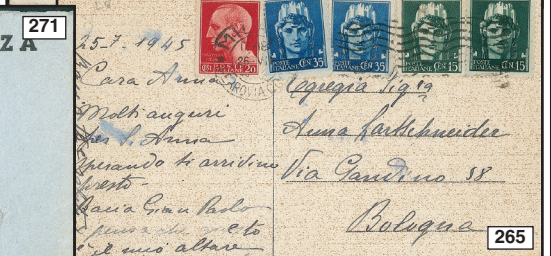 271
Z A
25-7 1945
Cara Anna
Molti auguri
per S. Anna
sperando ti arridino
presto-
Bacia Gian Paolo
e pensa che
è il mio altare
CEN 20
POSTE ITALIANE CEN 35
POSTE ITALIANE CEN 35
POSTE ITALIANE CEN 15
POSTE ITALIANE CEN 15
Egregia Sig.ra
Anna Lartschneider
Via Gandino 38
Bologna
265